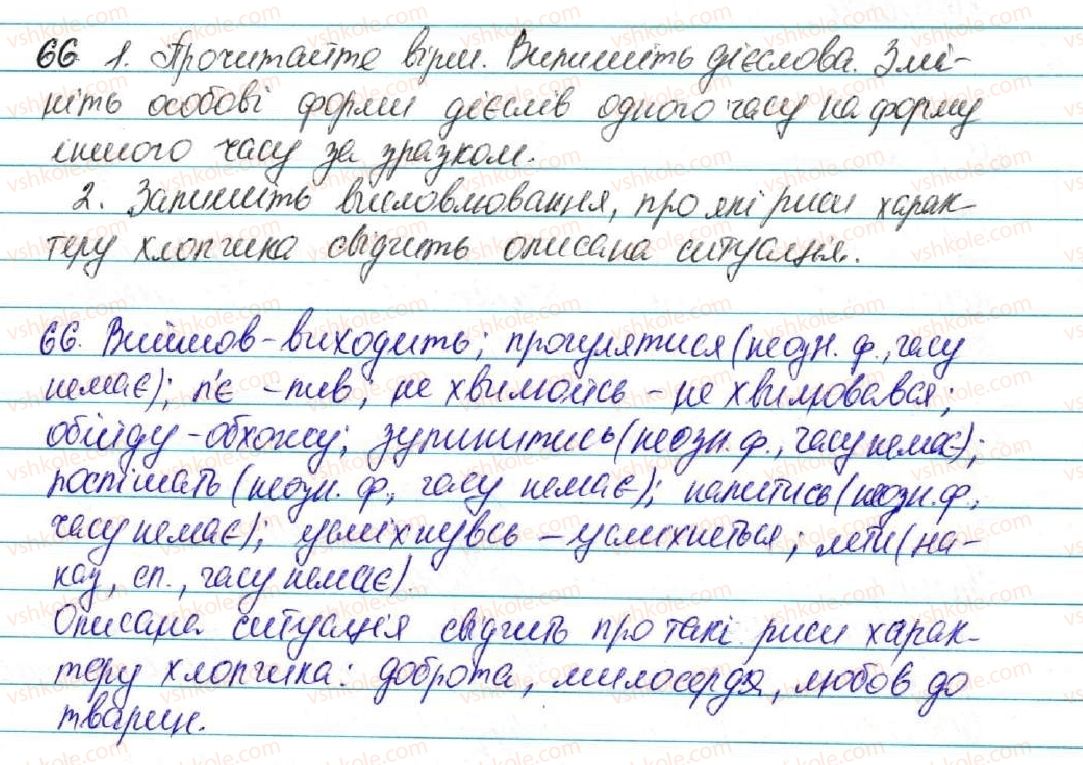 66 1. Прочитайте вірш. Випишіть дієслова. Змі-
ніть особові форми дієслів одного часу на форму
іншого часу за зразком.
2. Запишіть висловлювання, про які риси харак-
теру хлопчика свідчить описана ситуація.
66. Вийшов - виходить; прогулятися (неозн. ф., часу
немає); п'є - пив; не хвилюйсь - не хвилювався;
обійду - обхожу; зупинитись (неозн. ф., часу немає);
поспішать (неозн. ф., часу немає); напитись (неозн. ф.,
часу немає); усміхнувсь - усміхнеться; лети (на-
каз. сп., часу немає).
Описана ситуація свідчить про такі риси харак-
теру хлопчика: доброта, милосердя, любов до
тварин.